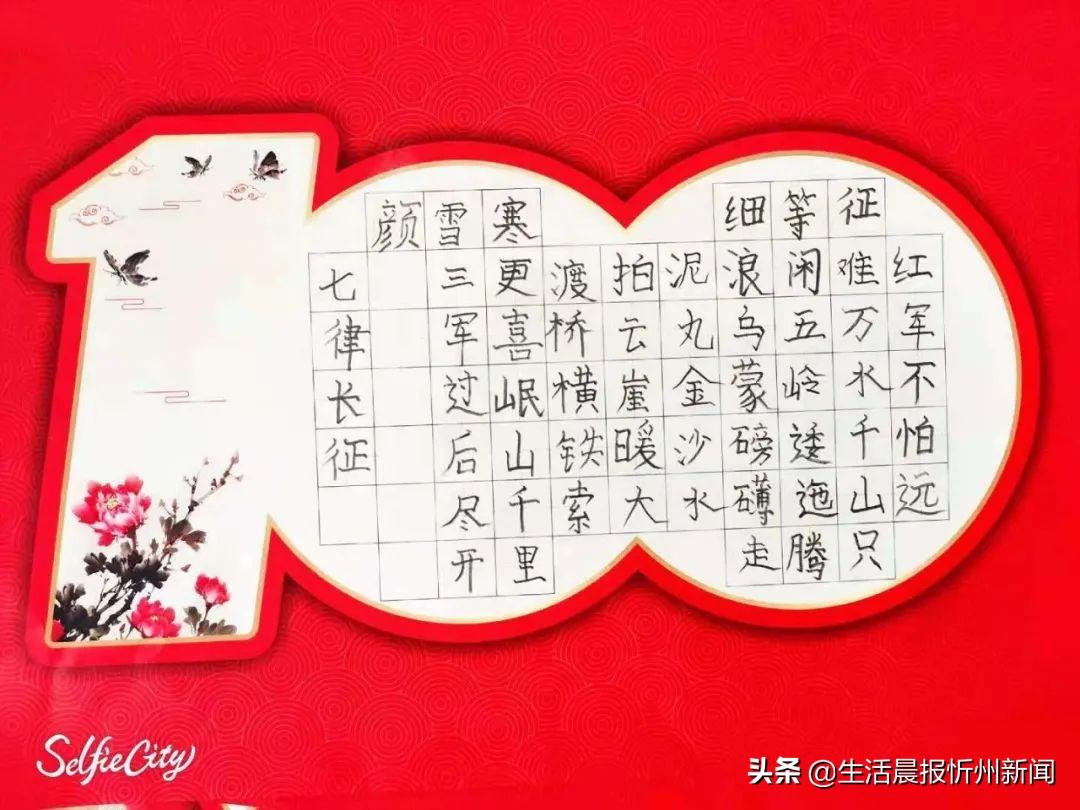 红军不怕远
征难万水千山只
等闲五岭逶迤腾
细浪乌蒙磅礴走
泥丸金沙水
拍云崖暖大
渡桥横铁索
寒更喜岷山千里
雪三军过后尽开
颜
七律长征
SelfieCity
头条 @生活晨报忻州新闻